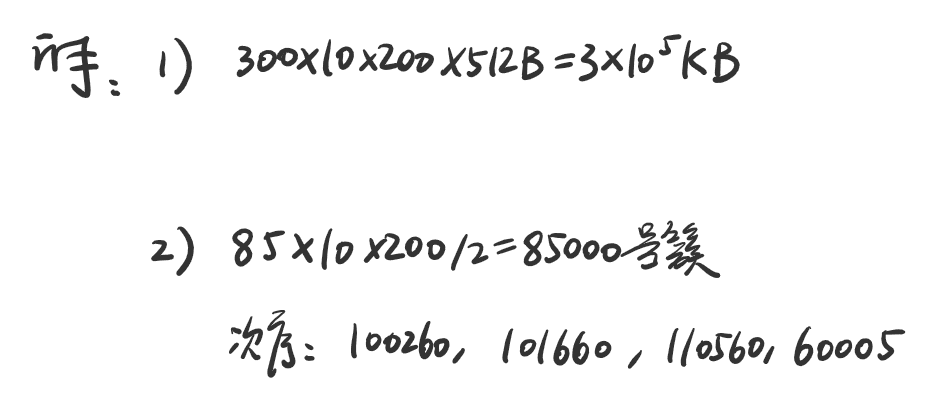 解：1) 300×10×200×512B=3×10⁵KB
2) 85×10×200/2=85000号簇
次序：100260, 101660, 110560, 60005